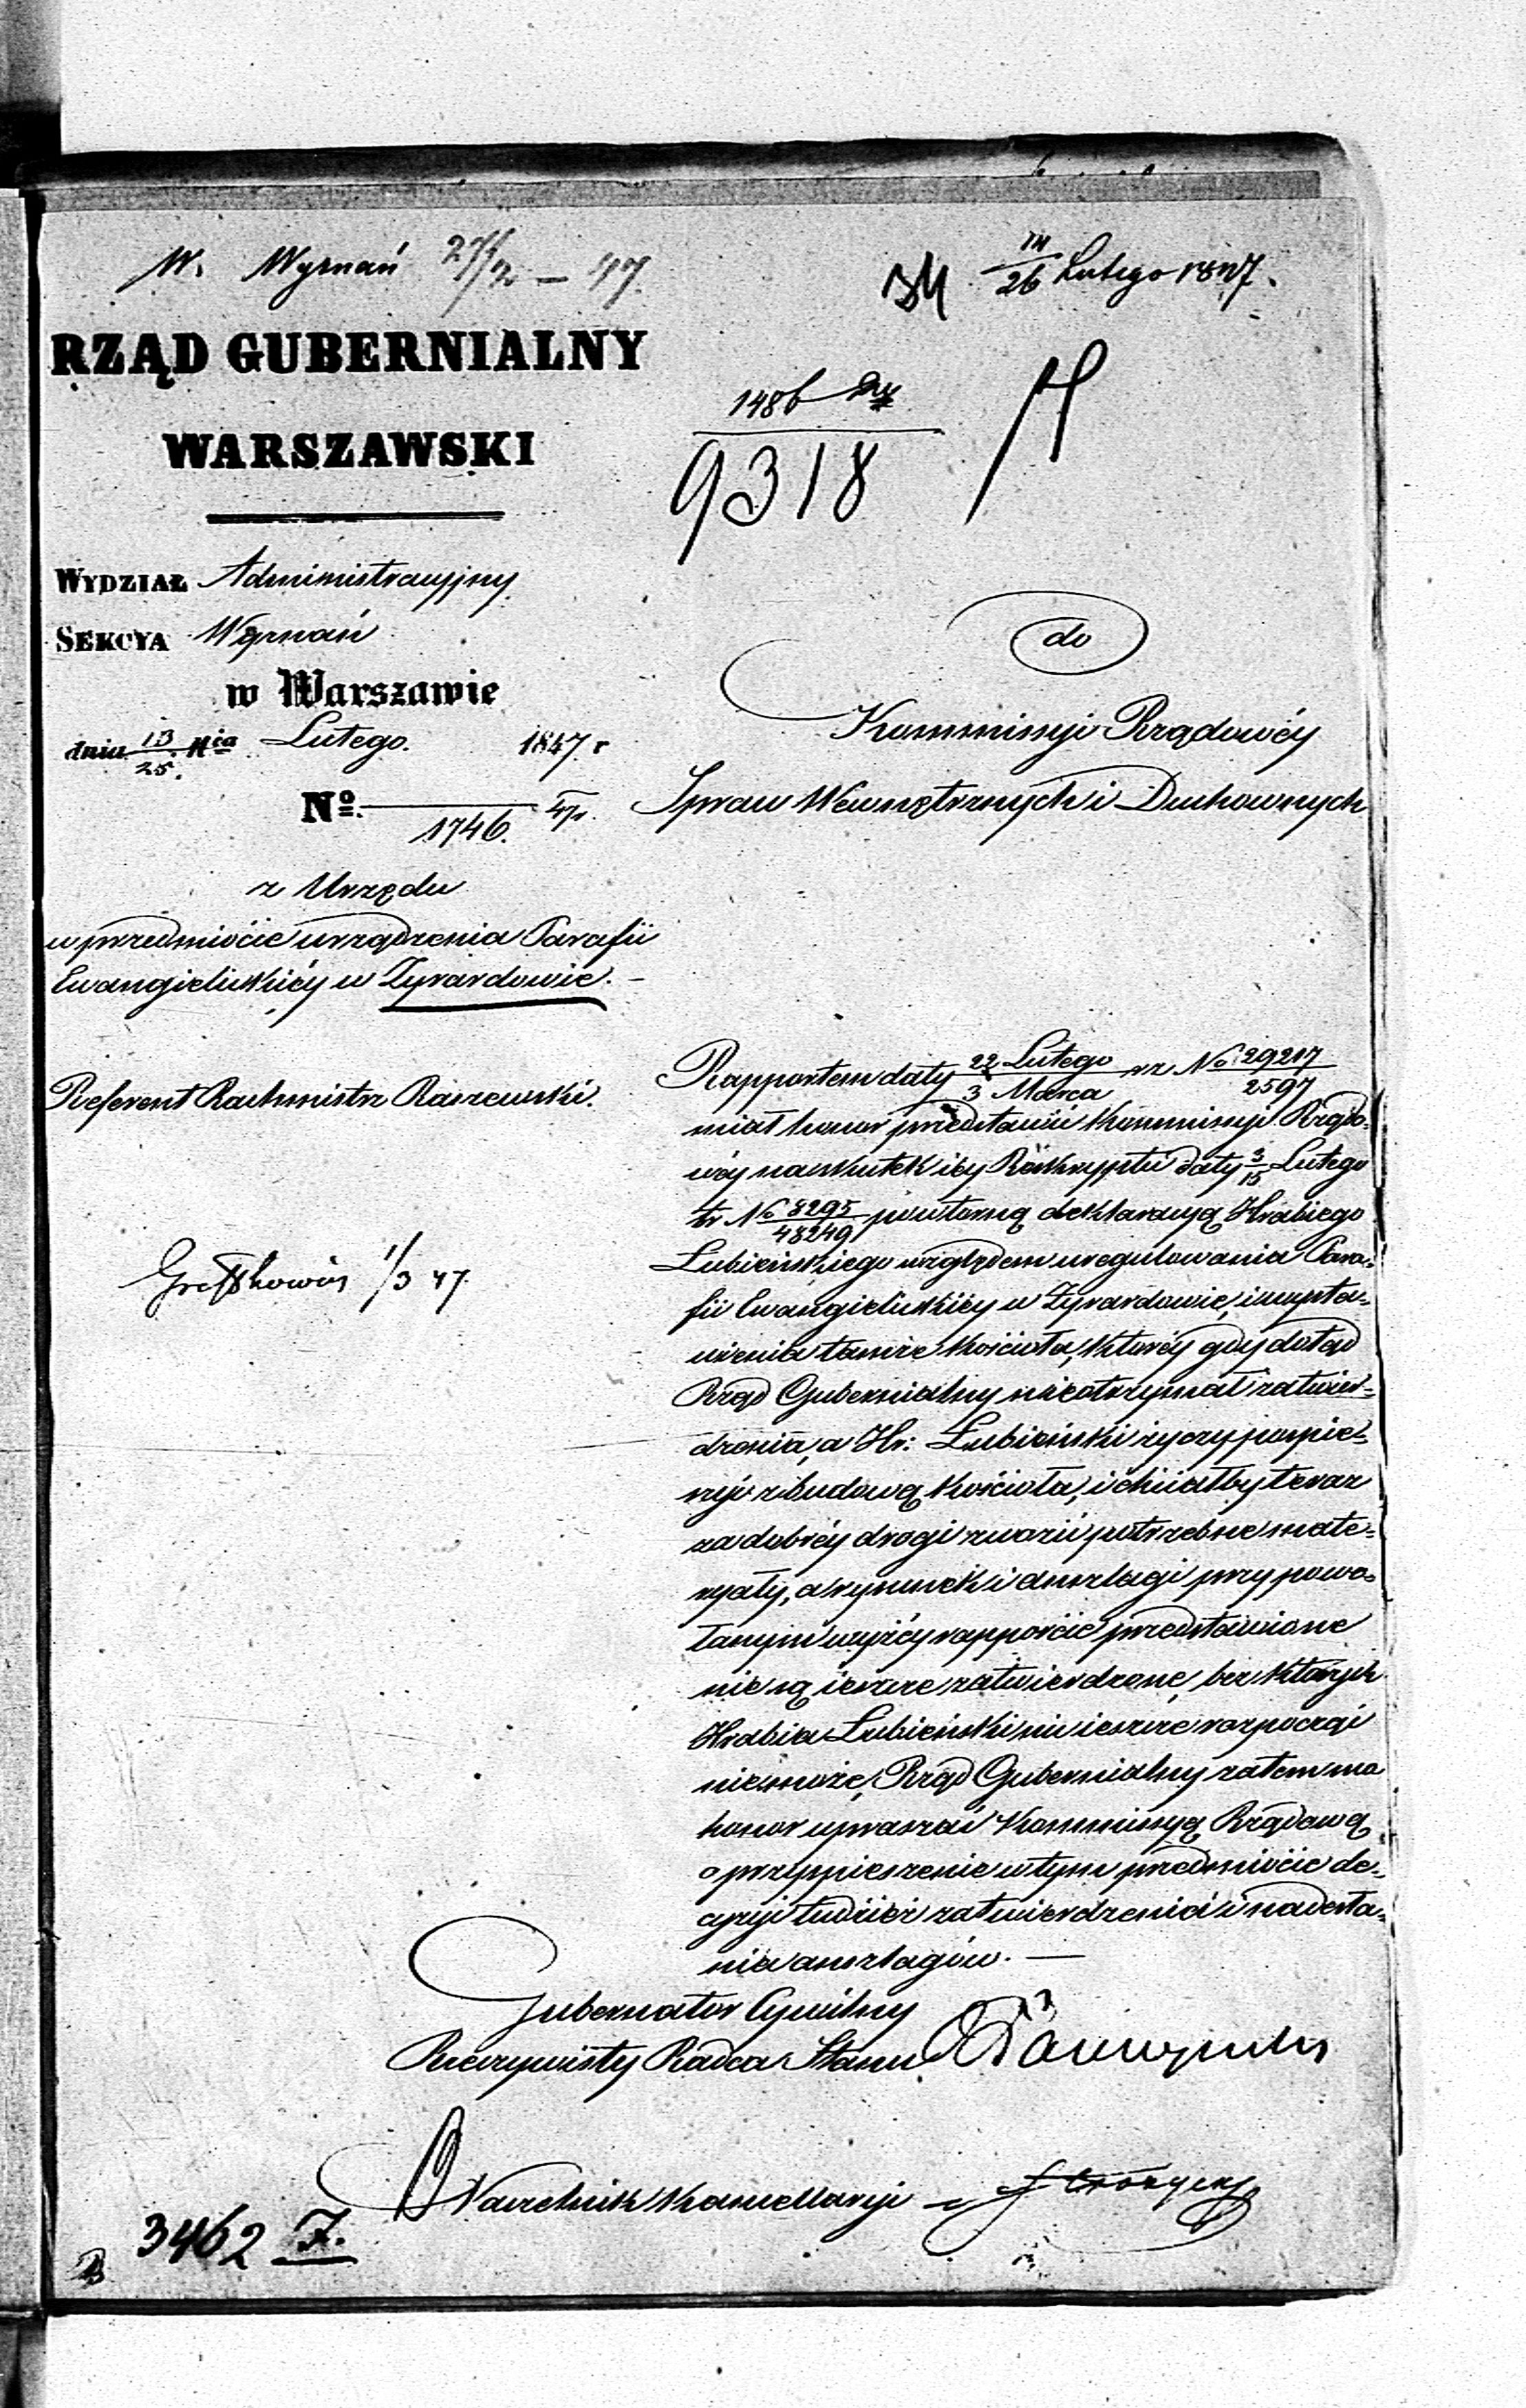 W. Wyznań 27/2 – 47.
34
14/26 Lutego 1847.
RZĄD GUBERNIALNY
WARSZAWSKI
1486
9318
WYDZIAŁ Administracyjny.
SEKCYA Wyznań
w Warszawie
dnia 13/25 Nia Lutego. 1847. r
№ 1746. 47r.
z Urzędu
w przedmiocie urządzenia Parafii
Ewangielickiéy w Zyrardowie. –
Referent Rachmistrz Raszewski.
1/3 47
do
Kommissyi Rządowéy
Spraw Wewnętrznych i Duchownych
Rapportem daty 22 Lutego/3 Marca r z. No 29217/2597
miał honor przedstawić Kommissyi Rządo-
wéy na skutek iéy Reskryptu daty 3/15 Lutego
t.r No 8295/48249 powtorną deklaracyą Hrabiego
Lubieńskiego względem uregulowania Para-
fii Ewangielickiéy w Zyrardowie, i wysta-
wienia tamże kościoła, ktoréy gdy dotąd
Rząd Gubernialny nieotrzymał zatwier-
dzenia, a Hr: Lubieński życzy pospie-
szyć z budową kościoła, i chciałby teraz
za dobréy drogi zwozić potrzebne mate-
ryały, a rysunek i anszlagi przy powo-
łanym wyżéy rapporcie przedstawione
nie są ieszcze zatwierdzone, bez których
Hrabia Lubieński nic ieszcze rozpocząć
niemoże, Rząd Gubernialny zatem ma
honor upraszać Kommissyą Rządową
o przyspieszenie w tym przedmiocie de-
cyzyi tudzież zatwierdzenia i nadesła-
nia anszlagów. —
Gubernator Cywilny
Rzeczywisty Radca Stanu
Naczelnik Kancellaryi
3462 I.